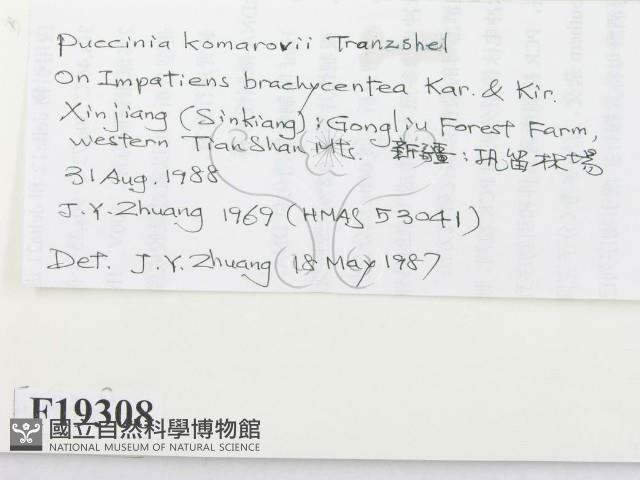 Puccinia komarovii Tranzshel
On Impatiens brachycentea Kar. & Kir.
Xinjiang (Sinkiang): Gongliu Forest Farm,
western TianShan Mts. 新疆:巩留林場
31 Aug. 1988
J.Y. Zhuang 1969 (HMAS 53041)
Det. J.Y. Zhuang 18 May 1987
F19308
國立自然科學博物館
NATIONAL MUSEUM OF NATURAL SCIENCE